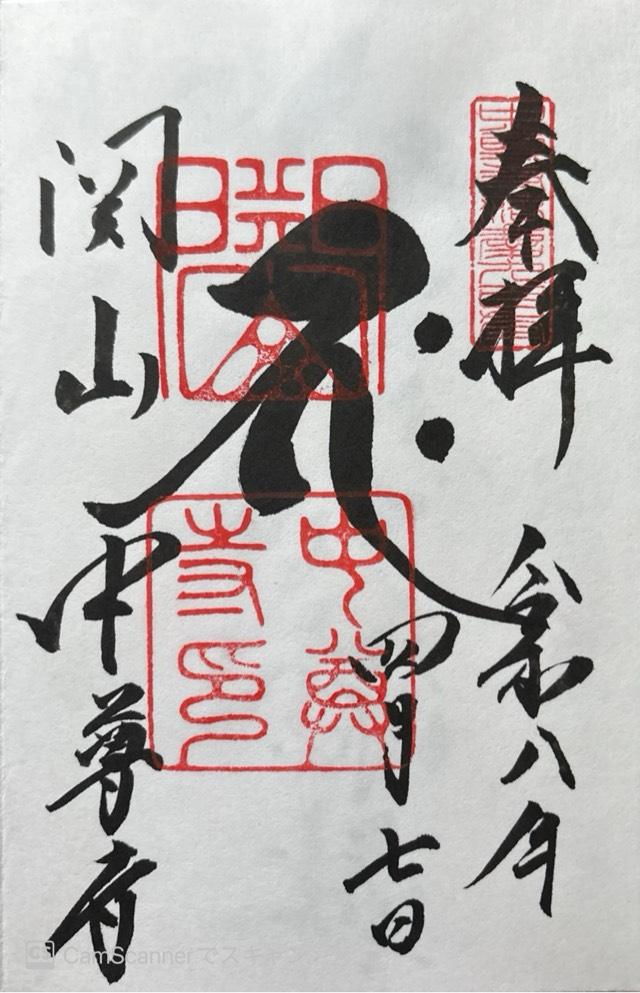 奉拝
令和八年
四月七日
关山
中尊寺
中尊寺印
CamScannerでスキャン